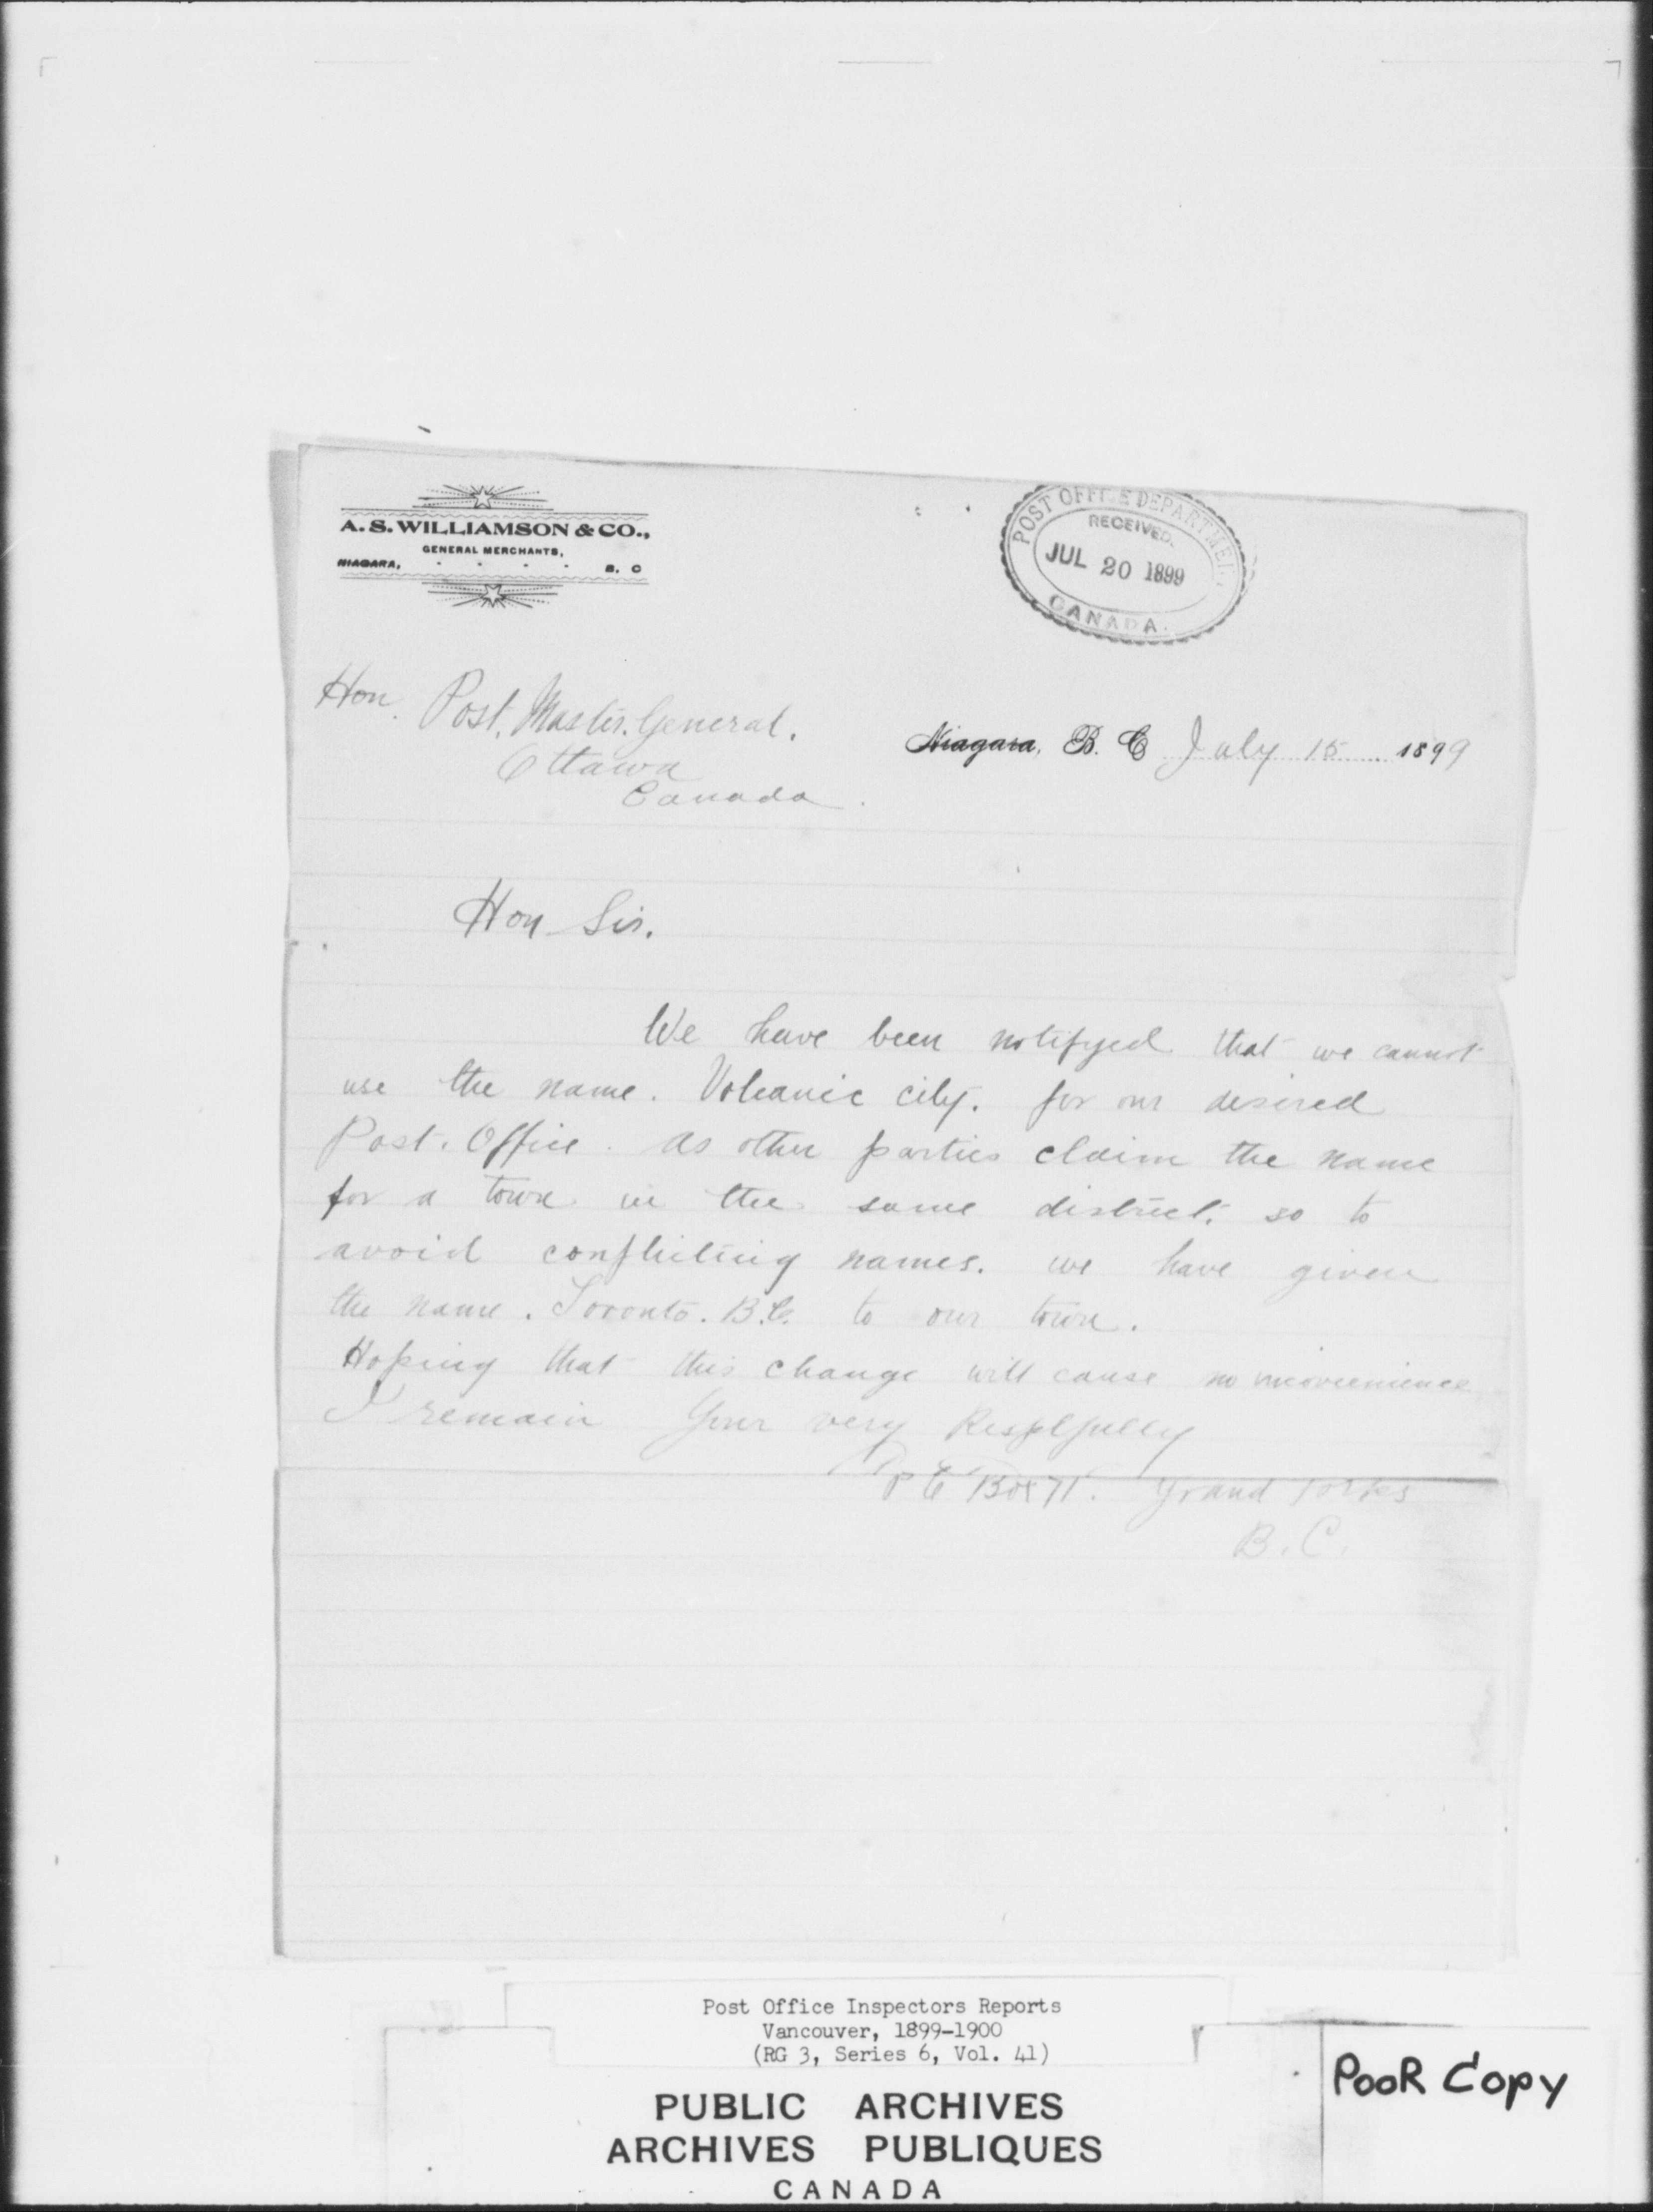 A. S. WILLIAMSON & CO.,
GENERAL MERCHANTS,
NIAGARA, - - - - B. C
POST OFFICE DEPARTMENT
RECEIVED.
JUL 20 1899
CANADA.
Hon. Post. Master. General.
Ottawa
Canada.
Niagara, B. C July 15 1899
Hon Sir.
We have been notifyed that we cannot
use the name. Volcanic city. for our desired
Post. Office. as other parties claim the name
for a town in the same district. so to
avoid conflicting names. we have given
the name. Toronto. B.C. to our town.
Hoping that this change will cause no
I remain Your very
Box 71. Grand Forks
B. C.
Post Office Inspectors Reports
Vancouver, 1899-1900
(RG 3, Series 6, Vol. 41)
PUBLIC ARCHIVES
ARCHIVES PUBLIQUES
CANADA
POOR COPY